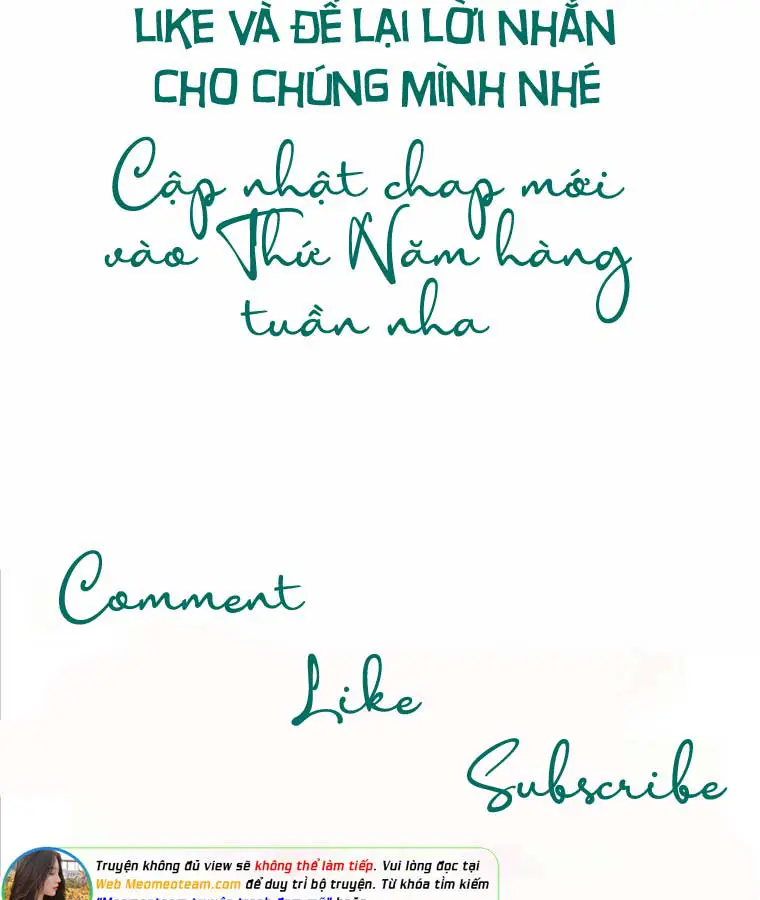 LIKE VÀ ĐỂ LẠI LỜI NHẮN
CHO CHÚNG MÌNH NHÉ
Cập nhật chap mới
vào Thứ Năm hàng
tuần nha
Comment
Like
Subscribe
Truyện không đủ view sẽ không thể làm tiếp. Vui lòng đọc tại
Web Meomeoteam.com để duy trì bộ truyện. Từ khóa tìm kiếm
"Meomeoteam truyện tranh đam mĩ" hoặc